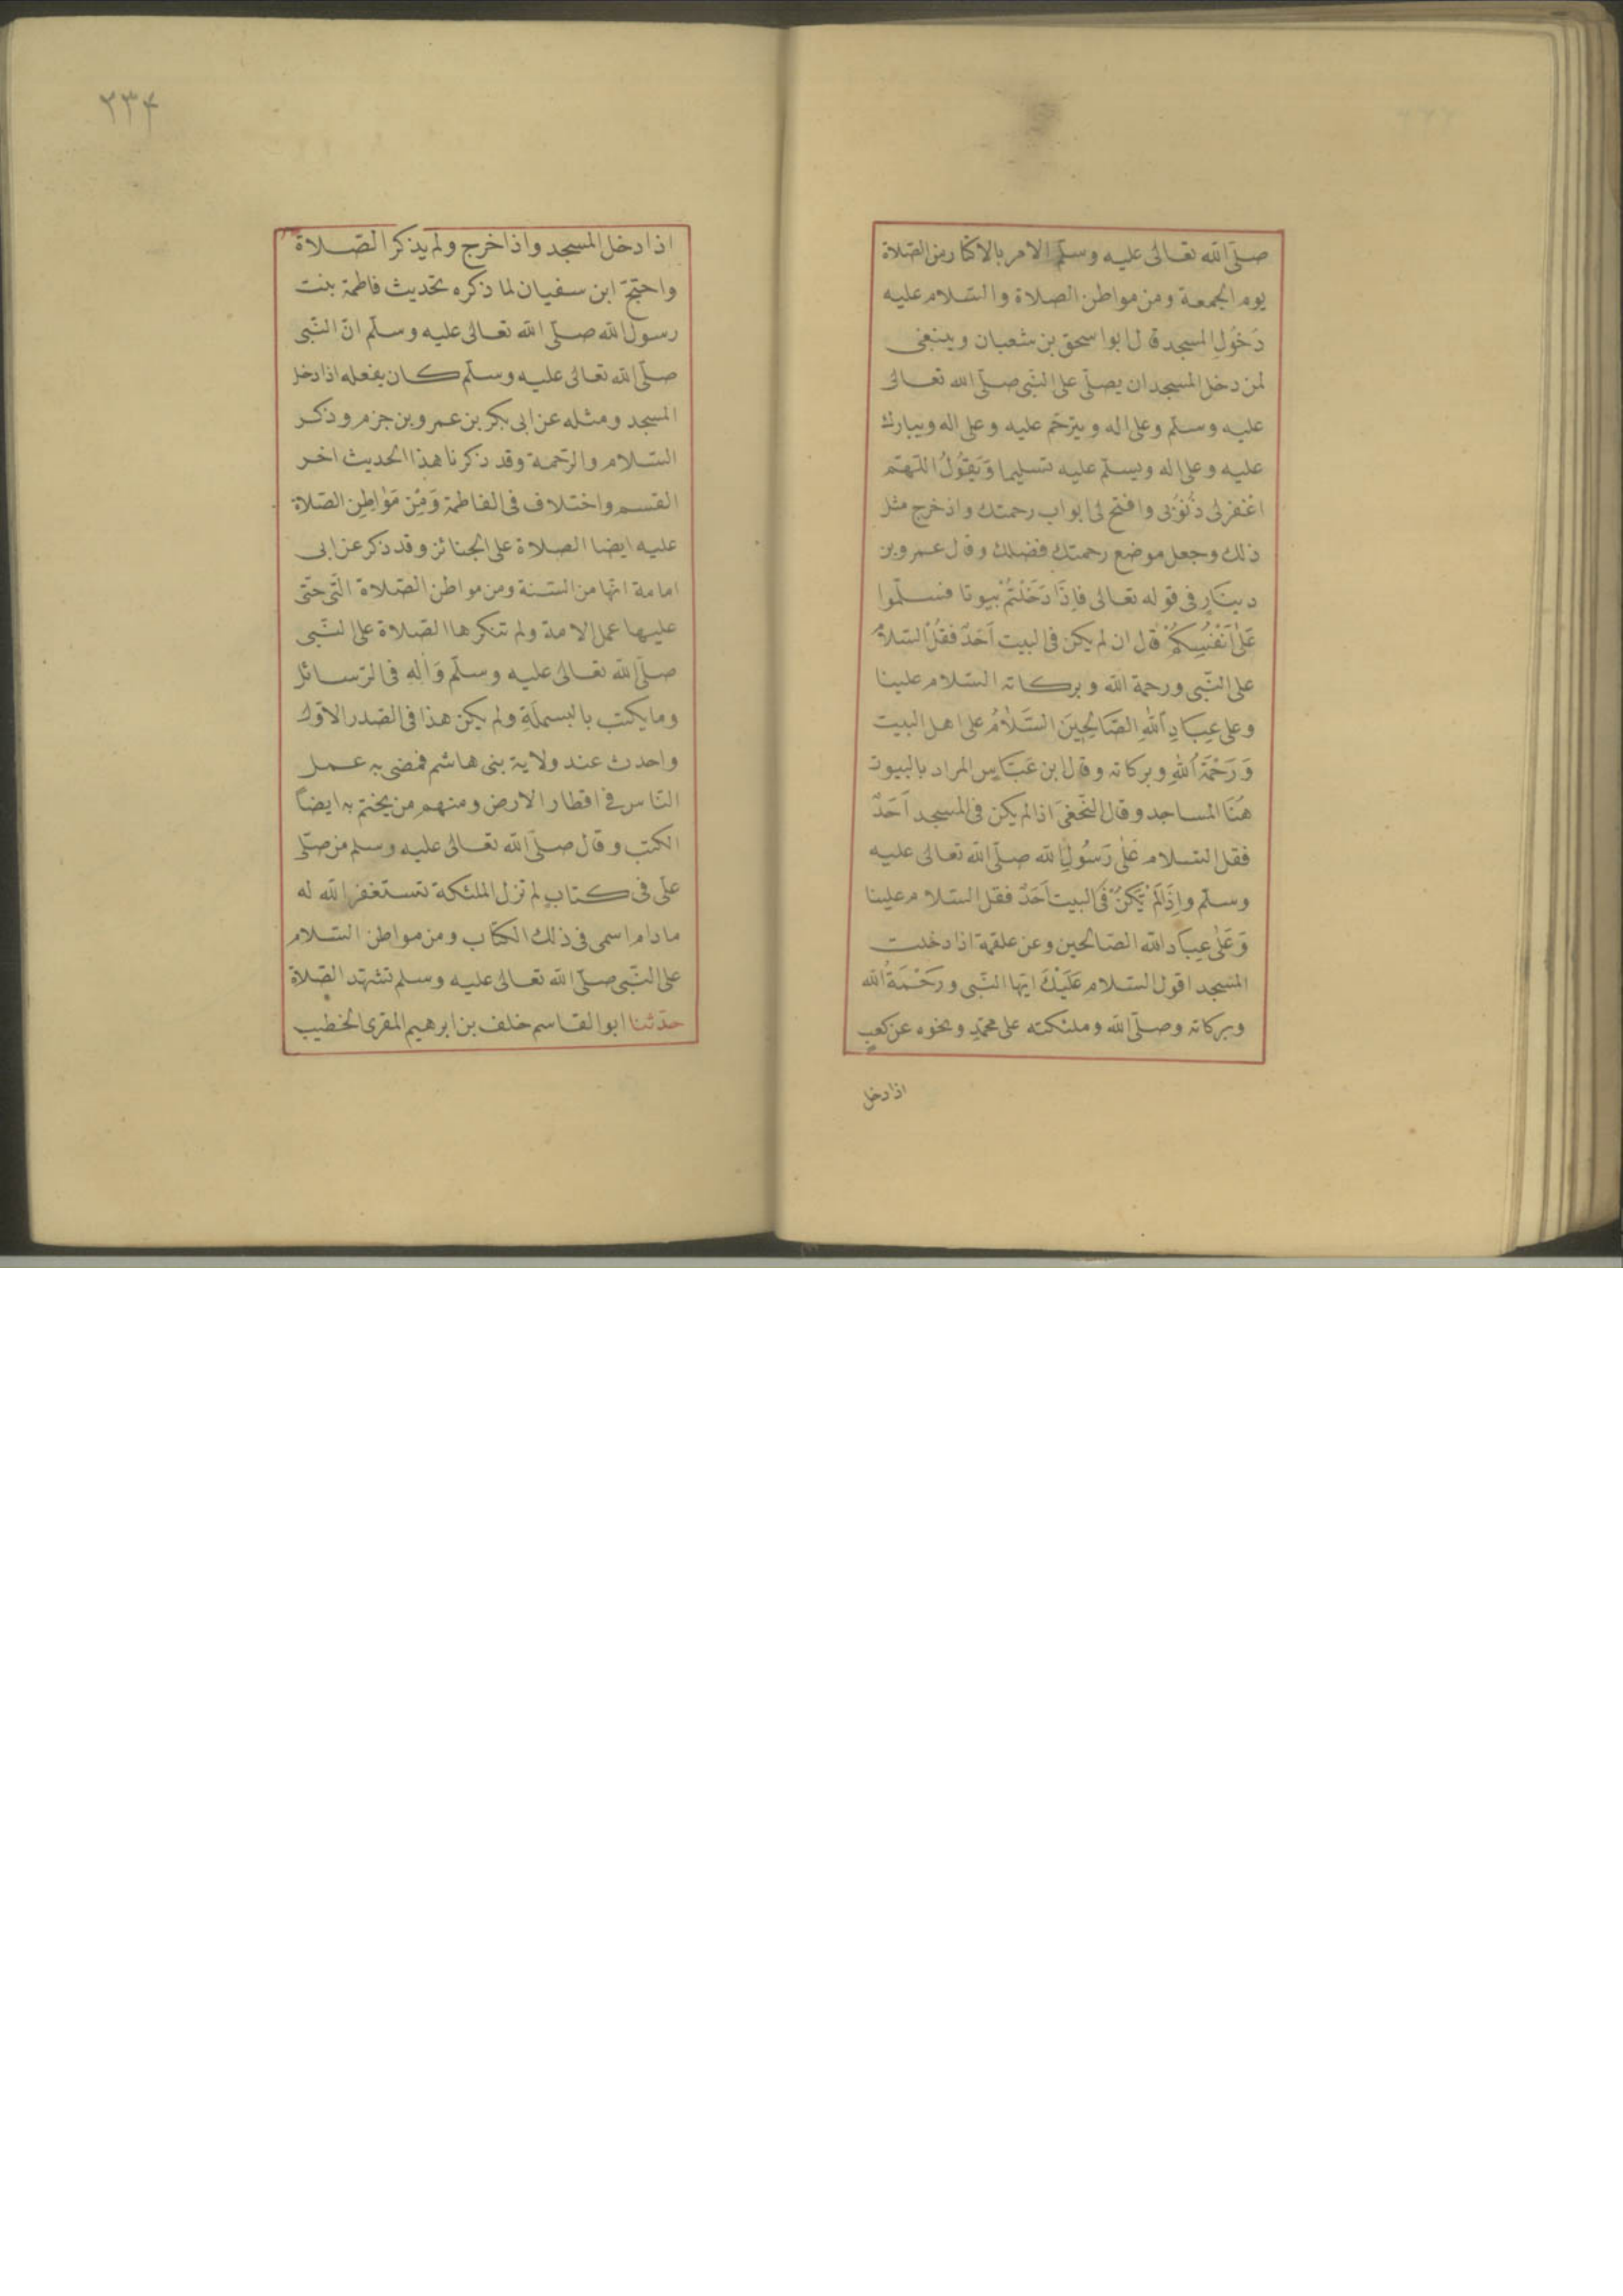 صلّى الله تعالى عليه وسلّم الامر بالاكثار من الصّلاة
يوم الجمعة ومن مواطن الصلاة والسّلام عليه
دَخُولِ المسجد قال ابو اسحق بن شعبان وينبغى
لمن دخل المسجد ان يصلّى على النّبى صلّى الله تعالى
عليه وسلّم وعلى اله ويترحّم عليه وعلى اله ويبارك
عليه وعلى اله ويسلّم عليه تسليما وَيَقُوُلُ اللّهمّ
اغفرلى ذُنُوُبى وافتح لى ابواب رحمتك واذ خرج مثل
ذلك وجعل موضع رحمتك فضلك وقال عمرو بن
دينَارٍ فى قوله تعالى فاِذَا دَخَلْتُمْ بُيوتا فسلّموا
عَلىٰ اَنْفُسِكُمْ قال ان لم يكن فى البيت اَحَدٌ فقُلْ السّلامُ
على النّبى ورحمة الله وبركاته السّلام علينا
وعلى عِبَادِ اللهِ الصَالِحِينَ السَّلاٰمُ على اهل البيت
وَرَحْمَةُ اللهِ وبركاته وقال ابن عَبّاسٍ المراد بالبيوت
هُنَا المساجد وقال النّخعىَ اذا لم يكن فى المسجد اَحَدٌ
فقل السّلام عَلىٰ رَسُولِ الله صلّى الله تعالى عليه
وسلّم واِذَا لَمْ يَكُنْ فى البيت اَحَدٌ فقل السّلام علينا
وَعَلىٰ عِبَادِ الله الصّالحين وعن علقمة اذا دخلت
المسْجد اقول السّلام عَلَيْكَ ايّها النّبى ورَحْمَةُ الله
وبركاته وصلّى الله وملئكته على محمّدٍ ونحوه عن كعبٍ
اذا دخل
٢٣۴
اذا دخل المسجد واذا خرج ولم يذكر الصّلاة
واحتجّ ابن سفيان لما ذكره بحديث فاطمة بنت
رسول الله صلّى الله تعالى عليه وسلّم انّ النّبى
صلّى الله تعالى عليه وسلّم كان يفعله اذا دخل
المسجد ومثله عن ابى بكر بن عمرو بن حزم وذكر
السّلام والرّحمة وقد ذكرنا هذا الحديث اخر
القسم واختلاف فى الفاطمة وَمِنْ مَوَاطِنِ الصّلاة
عليه ايضا الصلاة على الجنائز وقد ذكر عن ابى
امامة انّها من السّنة ومن مواطن الصّلاة الّتى حتّى
عليها عمل الامة ولم تنكرها الصّلاة على النّبى
صلّى الله تعالى عليه وسلّم وَاٰلِهِ فى الرّسائل
وما يكتب بالبسملَةِ ولم يكن هذا فى الصّدر الاوّل
واحدث عند ولاية بنى هاشم فمضى به عمل
النّاس فى اقطار الارض ومنهم من يختم به ايضاً
الكتب وقال صلّى الله تعالى عليه وسلم من صلّى
علىّ فى كتابٍ لم تزل الملئكة تستغفر الله له
مادام اسمى فى ذلك الكتاب ومن مواطن السّلام
على النّبى صلّى الله تعالى عليه وسلم تشهّد الصّلاة
حدّثنا ابو القاسم خلف بن ابرهيم المقرى الخطيب